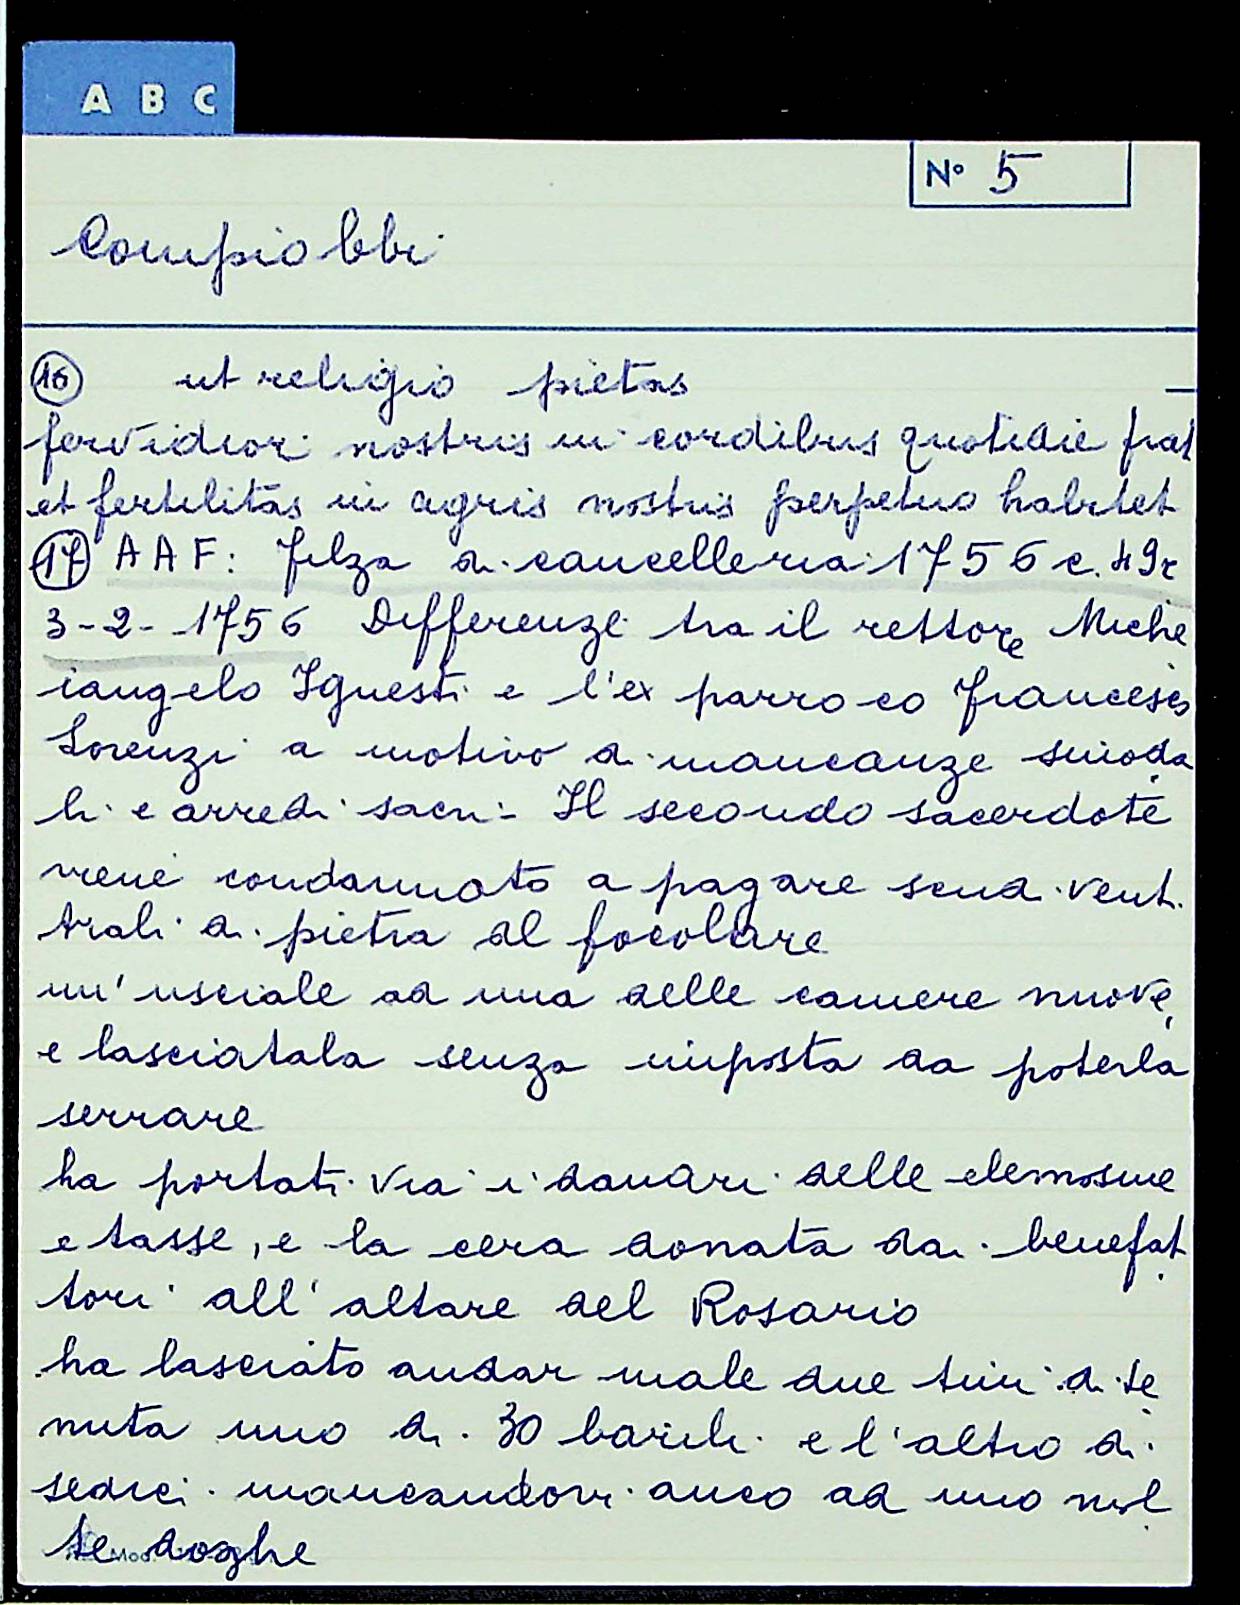 A B C
N° 5
Compiobbi
16 ut religio pietas
fervidior nostris in cordibus quotidie fiat
et fertilitas in agris nostris perpetuo habitet
17 A A F: Filza di cancelleria 1756 c. 49r
3-2-1756 Differenze tra il rettore Miche
langelo Ignesti e l'ex parroco Francesco
Lorenzi a motivo di mancanze sinoda
li e arredi sacri: Il secondo sacerdote
viene condannato a pagare scudi venti
trali di pietra al focolare
un'usciale ad una delle camere nuove,
e lasciatala senza imposta da poterla
serrare
ha portati via i danari delle elemosine
e tasse, e la cera donata dai benefat
tori all'altare del Rosario
ha lasciato andar male due tini di te
nuta uno di 30 barili e l'altro di
sedici mancandovi anco ad uno mol
te doghe